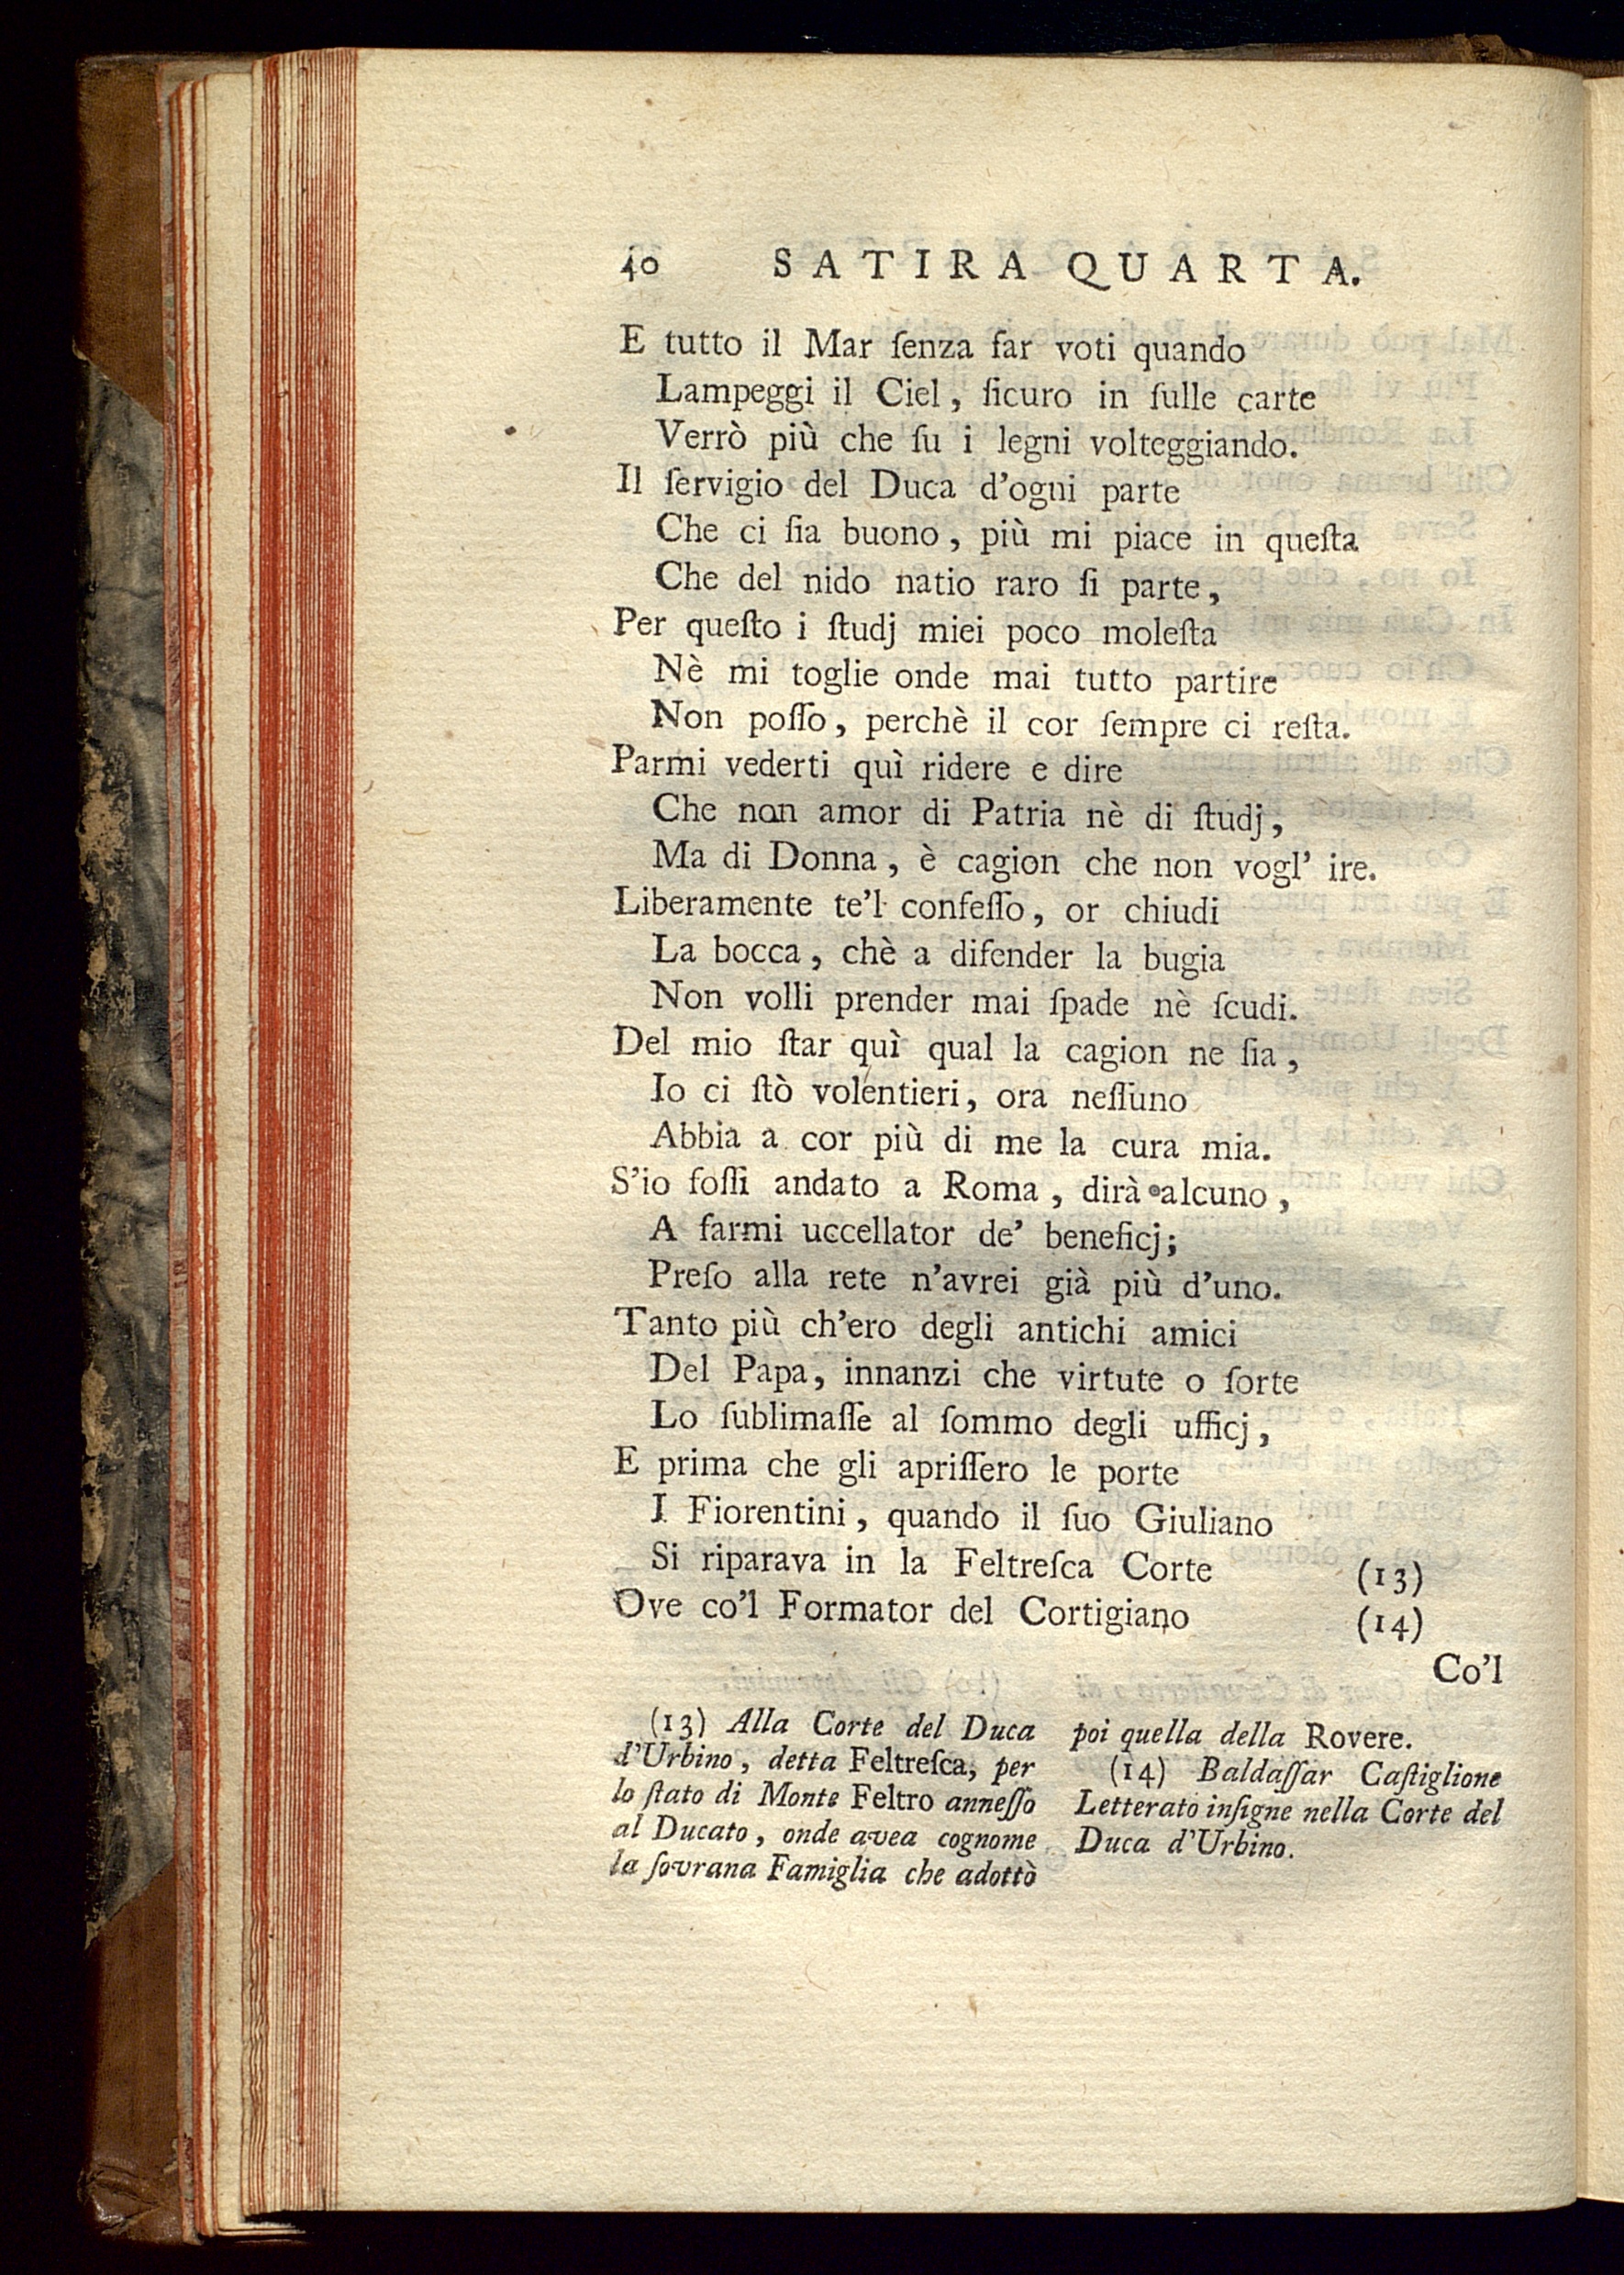 40 SATIRA QUARTA.
E tutto il Mar ſenza far voti quando
Lampeggi il Ciel, ſicuro in ſulle carte
Verrò più che ſu i legni volteggiando.
Il ſervigio del Duca d'ogni parte
Che ci ſia buono, più mi piace in queſta
Che del nido natio raro ſi parte,
Per queſto i ſtudj miei poco moleſta
Nè mi toglie onde mai tutto partire
Non poſſo, perchè il cor ſempre ci reſta.
Parmi vederti quì ridere e dire
Che non amor di Patria nè di ſtudj,
Ma di Donna, è cagion che non vogl' ire.
Liberamente te'l confeſſo, or chiudi
La bocca, chè a difender la bugia
Non volli prender mai ſpade nè ſcudi.
Del mio ſtar quì qual la cagion ne ſia,
Io ci ſtò volentieri, ora neſſuno
Abbia a cor più di me la cura mia.
S'io foſſi andato a Roma, dirà alcuno,
A farmi uccellator de' beneficj;
Preſo alla rete n'avrei già più d'uno.
Tanto più ch'ero degli antichi amici
Del Papa, innanzi che virtute o ſorte
Lo ſublimaſſe al ſommo degli ufficj,
E prima che gli apriſſero le porte
I Fiorentini, quando il ſuo Giuliano
Si riparava in la Feltreſca Corte (13)
Ove co'l Formator del Cortigiano (14)
Co'l
(13) Alla Corte del Duca
d'Urbino, detta Feltreſca, per
lo ſtato di Monte Feltro anneſſo
al Ducato, onde avea cognome
la ſovrana Famiglia che adottò
poi quella della Rovere.
(14) Baldaſſar Caſtiglione
Letterato inſigne nella Corte del
Duca d'Urbino.